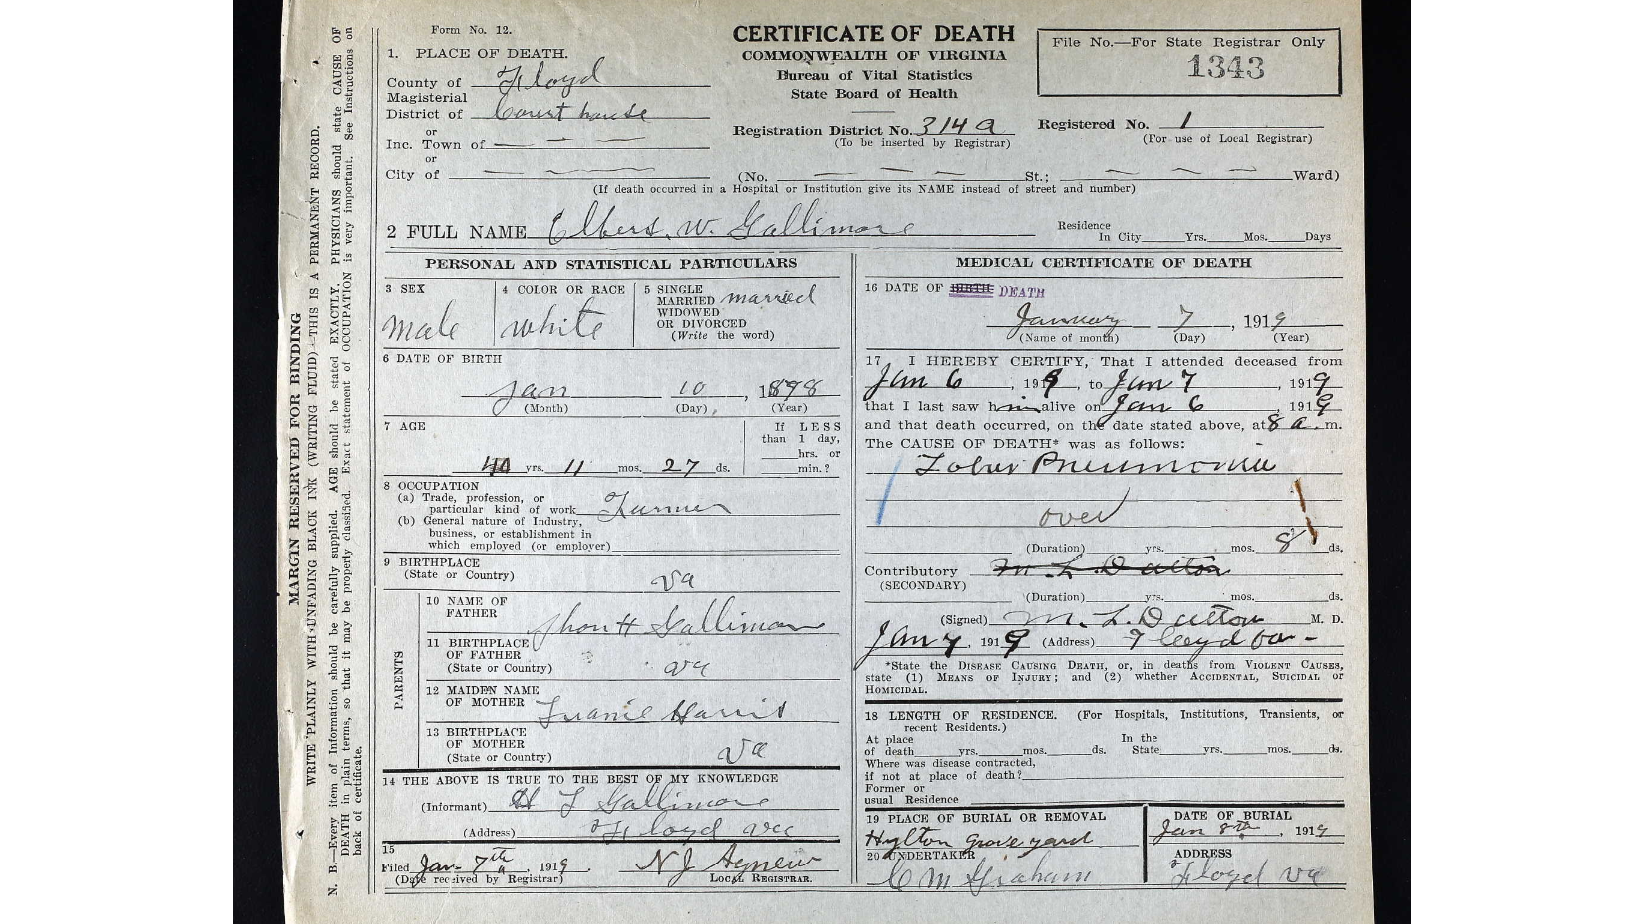 Form No. 12.
CERTIFICATE OF DEATH
COMMONWEALTH OF VIRGINIA
Bureau of Vital Statistics
State Board of Health
File No.—For State Registrar Only
1343
1. PLACE OF DEATH.
County of Floyd
Magisterial
District of Court house
or
Inc. Town of
or
City of
Registration District No. 314 a
(To be inserted by Registrar)
Registered No. 1
(For use of Local Registrar)
(No. St.; Ward)
(If death occurred in a Hospital or Institution give its NAME instead of street and number)
2 FULL NAME Elbert. W. Gallimore
Residence
In City Yrs. Mos. Days
PERSONAL AND STATISTICAL PARTICULARS
3 SEX
male
4 COLOR OR RACE
white
5 SINGLE
MARRIED married
WIDOWED
OR DIVORCED
(Write the word)
6 DATE OF BIRTH
Jan 10, 1898
(Month) (Day) (Year)
7 AGE
yrs. 11 mos. 27 ds.
If LESS
than 1 day,
hrs. or
min.?
8 OCCUPATION
(a) Trade, profession, or
particular kind of work Farmer
(b) General nature of Industry,
business, or establishment in
which employed (or employer)
9 BIRTHPLACE
(State or Country) va
PARENTS
10 NAME OF
FATHER H Gallimore
11 BIRTHPLACE
OF FATHER
(State or Country) va
12 MAIDEN NAME
OF MOTHER Harris
13 BIRTHPLACE
OF MOTHER
(State or Country) Va
14 THE ABOVE IS TRUE TO THE BEST OF MY KNOWLEDGE
(Informant) Gallimore
(Address) Floyd Va
15
Filed Jan- 7th, 1919. N J Agnew
(Date received by Registrar) LOCAL REGISTRAR.
MEDICAL CERTIFICATE OF DEATH
16 DATE OF BIRTH DEATH
January 7, 1919
(Name of month) (Day) (Year)
17 I HEREBY CERTIFY, That I attended deceased from
Jan 6, 1919, to Jan 7, 1919
that I last saw him alive on Jan 6 1919
and that death occurred, on the date stated above, at 8 a.m.
The CAUSE OF DEATH* was as follows:
Lobar Pneumonia
over
(Duration) yrs. mos. 8 ds.
Contributory M. L. Dalton
(SECONDARY)
(Duration) yrs. mos. ds.
(Signed) M. L. Dalton M. D.
Jan 7, 1919 (Address) Floyd Va -
*State the DISEASE CAUSING DEATH, or, in deaths from VIOLENT CAUSES,
state (1) MEANS OF INJURY; and (2) whether ACCIDENTAL, SUICIDAL or
HOMICIDAL.
18 LENGTH OF RESIDENCE. (For Hospitals, Institutions, Transients, or
recent Residents.)
At place In the
of death yrs. mos. ds. State yrs. mos. ds.
Where was disease contracted,
if not at place of death?
Former or
usual Residence
19 PLACE OF BURIAL OR REMOVAL
Hylton Grave yard
DATE OF BURIAL
Jan 8th, 1919
20 UNDERTAKER
C M Graham
ADDRESS
Floyd Va
MARGIN RESERVED FOR BINDING
WRITE PLAINLY WITH UNFADING BLACK INK (WRITING FLUID)—THIS IS A PERMANENT RECORD.
N. B.—Every item of Information should be carefully supplied. AGE should be stated EXACTLY. PHYSICIANS should state CAUSE OF
DEATH in plain terms, so that it may be properly classified. Exact statement of OCCUPATION is very important. See Instructions on
back of certificate.